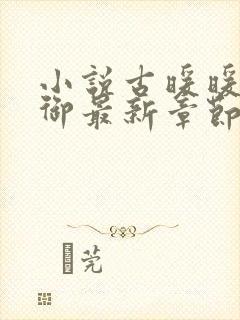 小说古暖暖
御最新章节
莞